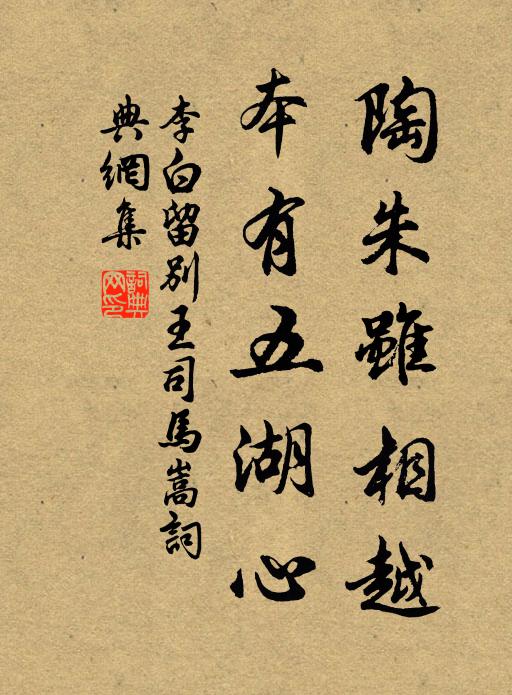 陶朱雖相越
本有五湖心
李白留別王司馬嵩詞
典網集
詞典網印